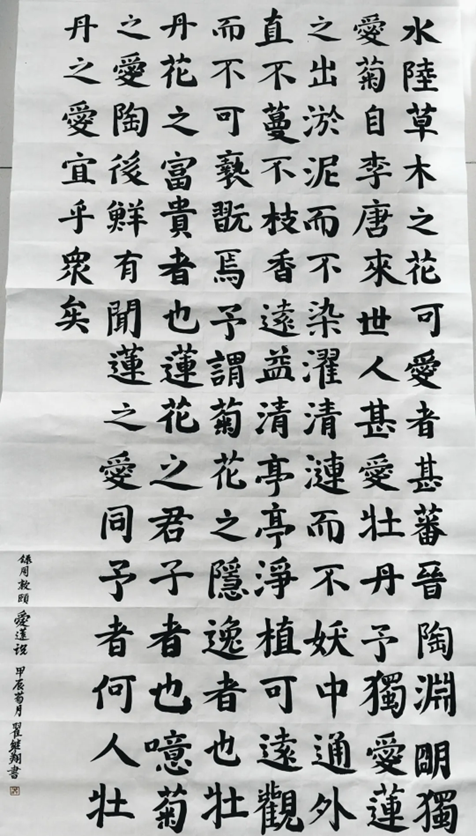 水陸草木之花可愛者甚蕃晉陶淵明獨
愛菊自李唐來世人甚愛牡丹予獨愛蓮
之出淤泥而不染濯清漣而不妖中通外
直不蔓不枝香遠益清亭亭淨植可遠觀
而不可褻翫焉予謂菊花之隱逸者也牡
丹花之富貴者也蓮花之君子者也噫菊
之愛陶後鮮有聞蓮之愛同予者何人牡
丹之愛宜乎衆矣
錄周敦頤愛蓮說 甲辰菊月 翟翔書